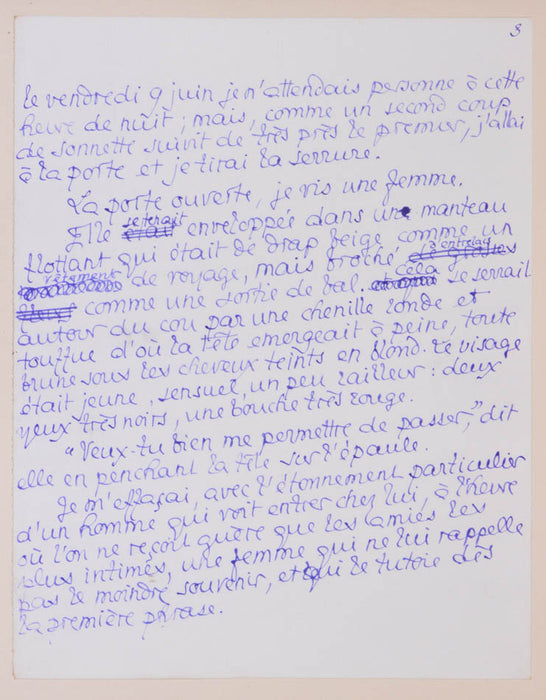 3
le vendredi 9 juin je n'attendais personne à cette
heure de nuit ; mais, comme un second coup
de sonnette suivit de très près le premier, j'allai
à la porte et je tirai la serrure.
La porte ouverte, je vis une femme.
se tenait
Elle était enveloppée dans un manteau
flottant qui était de drap beige comme un
vêtement de voyage, mais broché
comme une sortie de bal. cela se serrait
autour du cou par une chenille ronde et
touffue d'où la tête émergeait à peine, toute
brune sous les cheveux teints en blond. Le visage
était jeune, sensuel, un peu railleur : deux
yeux très noirs, une bouche très rouge.
"Veux-tu bien me permettre de passer," dit
elle en penchant la tête sur l'épaule.
Je m'effaçai, avec l'étonnement particulier
d'un homme qui voit entrer chez lui, à l'heure
où l'on ne reçoit guère que les amies les
plus intimes, une femme qui ne lui rappelle
pas le moindre souvenir, et qui le tutoie dès
la première phrase.